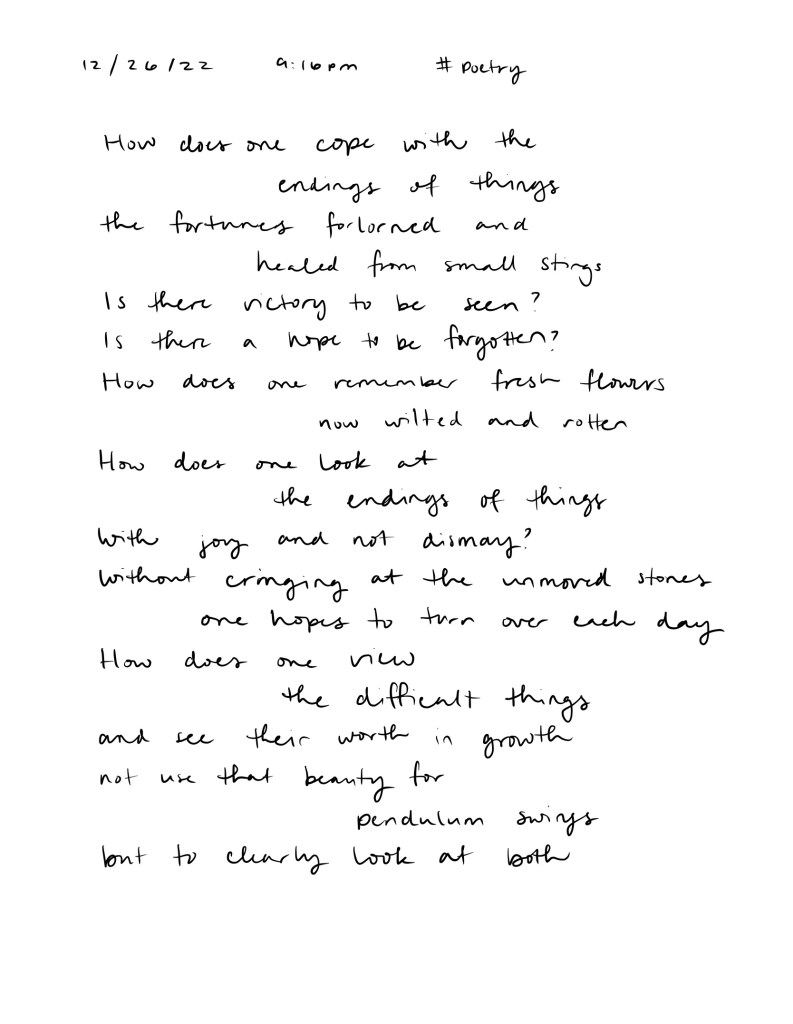 12/26/22 9:16pm # poetry
How does one cope with the
endings of things
the fortunes forlorned and
healed from small stings
Is there victory to be seen?
Is there a hope to be forgotten?
How does one remember fresh flowers
now wilted and rotten
How does one look at
the endings of things
with joy and not dismay?
without cringing at the unmoved stones
one hopes to turn over each day
How does one view
the difficult things
and see their worth in growth
not use that beauty for
pendulum swings
but to clearly look at both